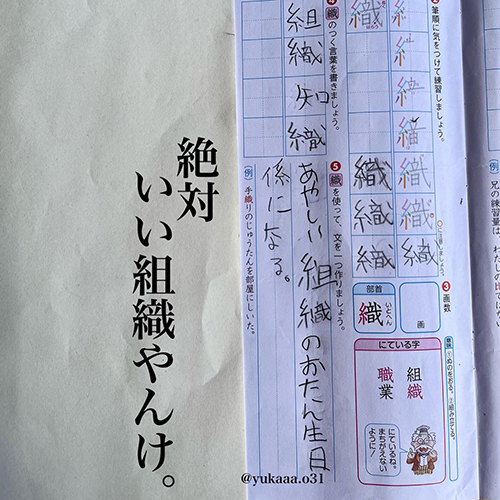 兄の練習量は、
❸画数
画
部首
織
いとへん
意味 ①ぬのをおる。②組み立てる。
にている字
組織
職業
にているね。
まちがえない
ように！
筆順に気をつけて練習しましょう。
織
織 織
織 織
織 織
織のつく言葉を書きましょう。
組織
知織
❺織を使って、文を一つ作りましょう。
あやしい組織のおたん生日
係になる。
(例)手織りのじゅうたんを部屋にしいた。
絶対
いい組織やんけ。
@yukaaa.o31